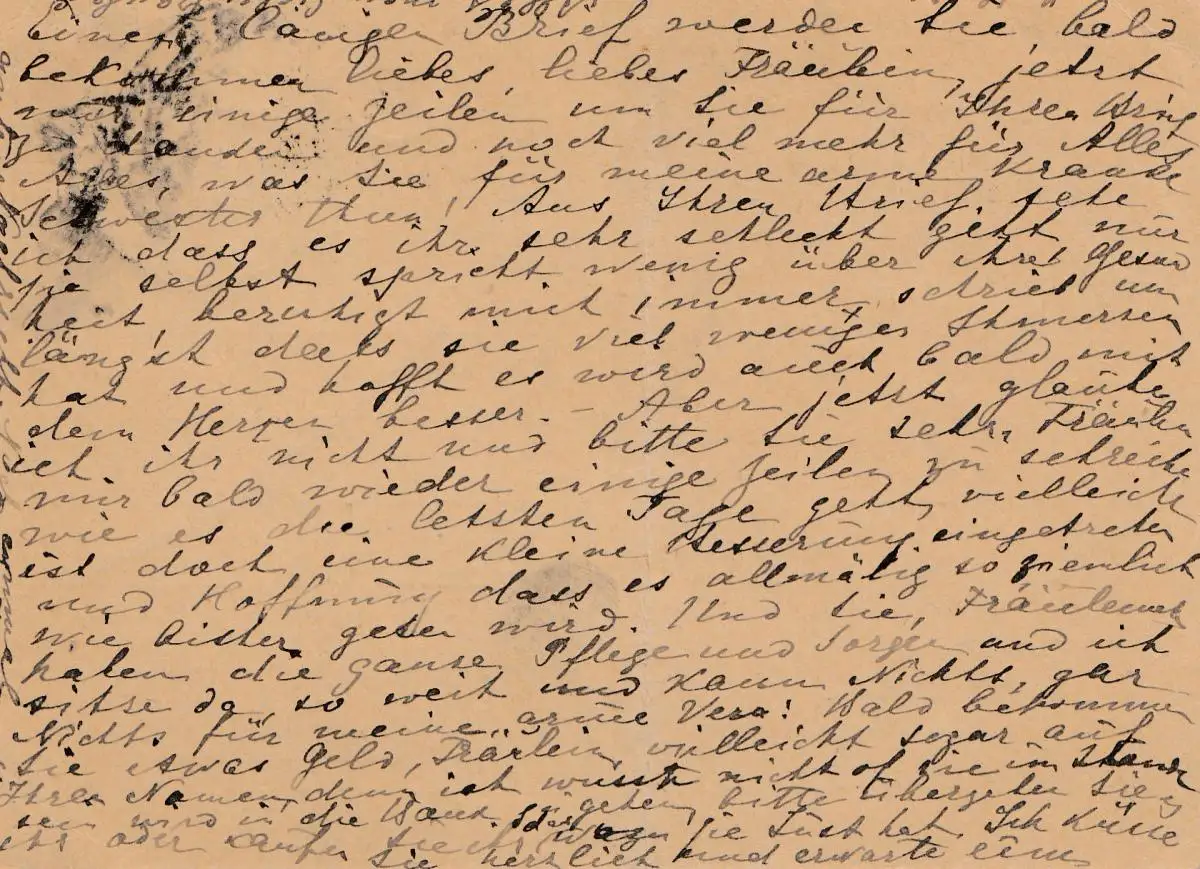 Einen langen Brief werden Sie bald
bekommen liebes, liebes Fräulein, jetzt
nur einige Zeilen um Sie für Ihren Brief
zu danken und noch viel mehr für Alles
Alles, was Sie für meine arme Kranke
Schwester thun! Aus Ihren Brief sehe
ich dass es ihr sehr schlecht geht, nur
sie selbst spricht wenig über ihre Gesund
heit, beruhigt mich immer, schrieb un
längst dass sie viel weniger Schmerzen
hat und hofft es wird auch bald mit
dem Herzen besser. – Aber jetzt glaube
ich ihr nicht und bitte Sie sehr, Fräulein
mir bald wieder einige Zeilen zu schreiben
wie es die letzten Tage geht, vielleicht
ist doch eine kleine Besserung eingetreten
und Hoffnung dass es allmälig so ziemlich
wie bisher gehen wird. Und Sie, Fräulein
haben die ganze Pflege und Sorgen und ich
sitze da, so weit und kann Nichts, gar
Nichts für meine arme Vera! Bald bekommen
Sie etwas Geld, Fräulein, vielleicht sogar auf
Ihren Namen, denn ich wusste nicht ob sie im Stande
sein wird in die Bank zu gehen, bitte übergeben Sie es
ihr oder kaufen Sie ihr wozu sie Lust hat. Ich küsse
Sie herzlich und erwarte einen